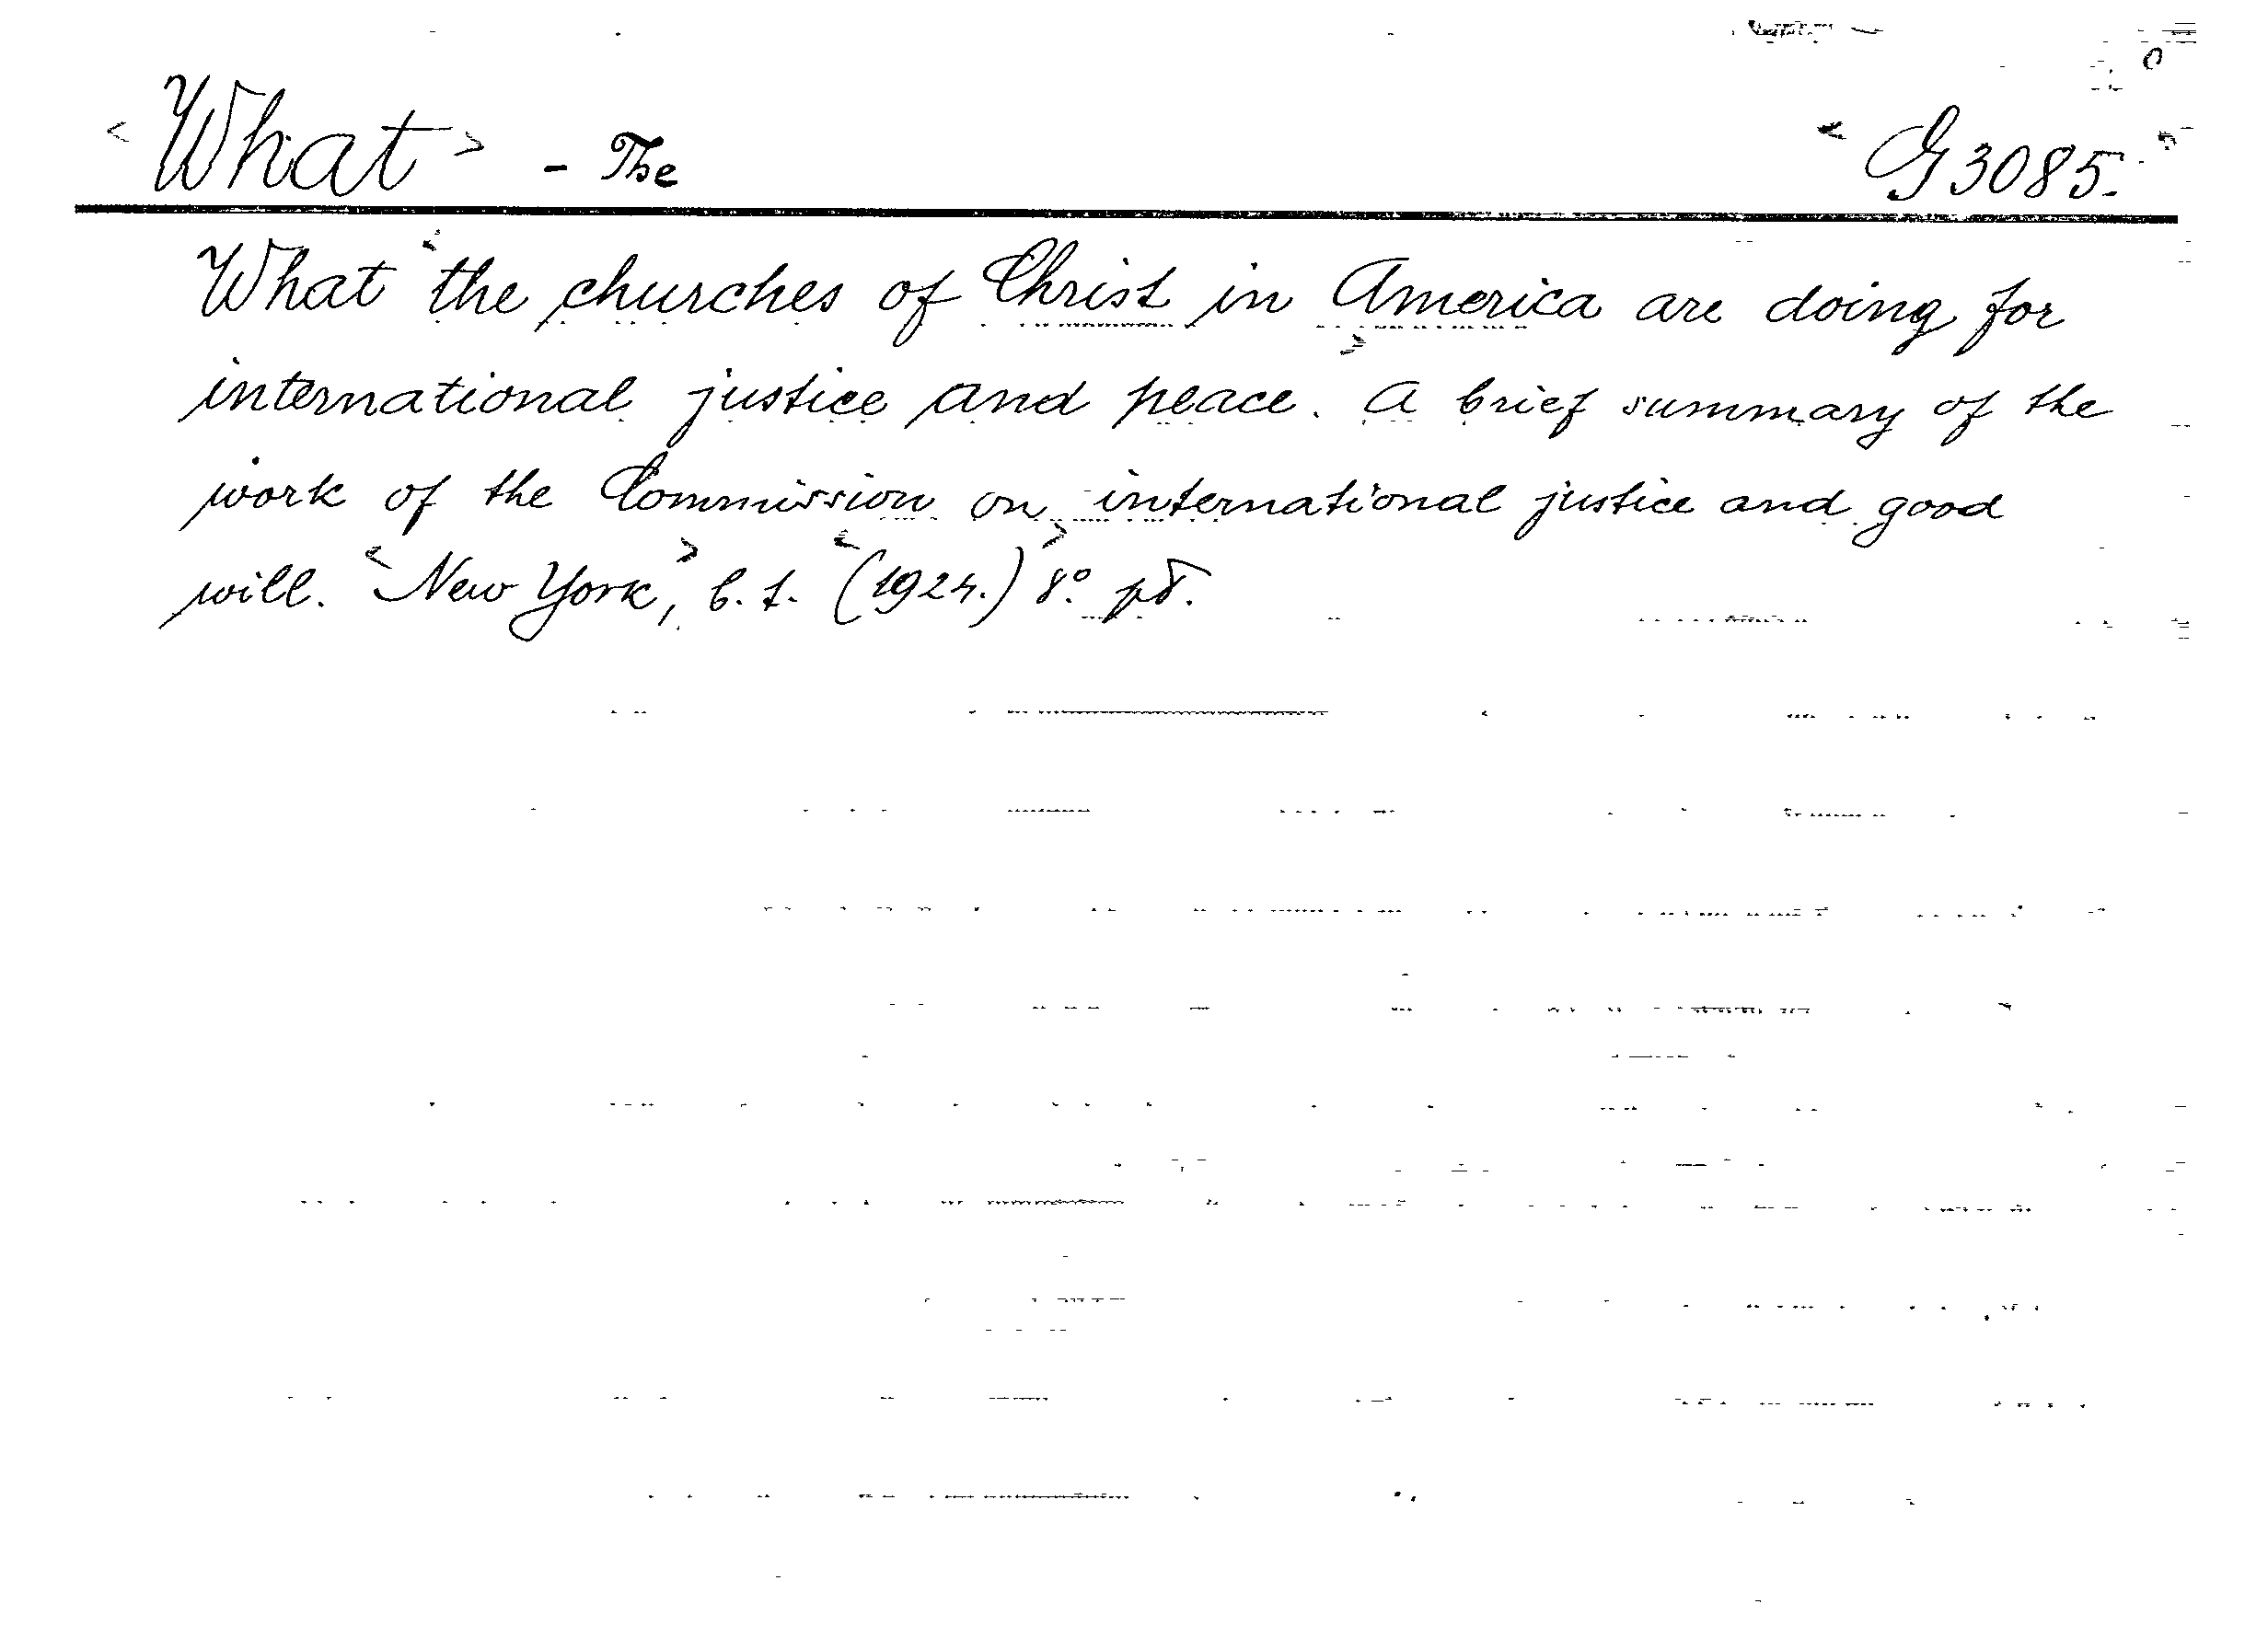 < What > - The < G 3085. >
What < the churches of Christ in America > are doing for
international justice and peace. A brief summary of the
work of the Commission on international justice and good
will. < New York >, < (1924.) > 8º